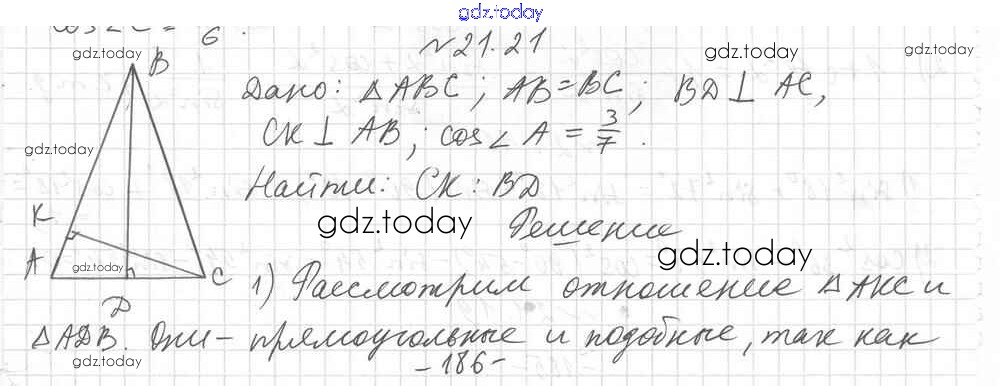 gdz.today
cos∠C = 6.
gdz.today
№21.21
gdz.today
gdz.today
B
Дано: △ABC; AB=BC; BD⊥AC,
CK⊥AB; cos∠A = 3/7.
gdz.today
Найти: CK:BD
K
gdz.today
Решение
gdz.today
A
gdz.today
C
D
1) Рассмотрим отношение △AKC и
△ADB. Они - прямоугольные и подобные, так как
gdz.today
-186-
gdz.today
gdz.today